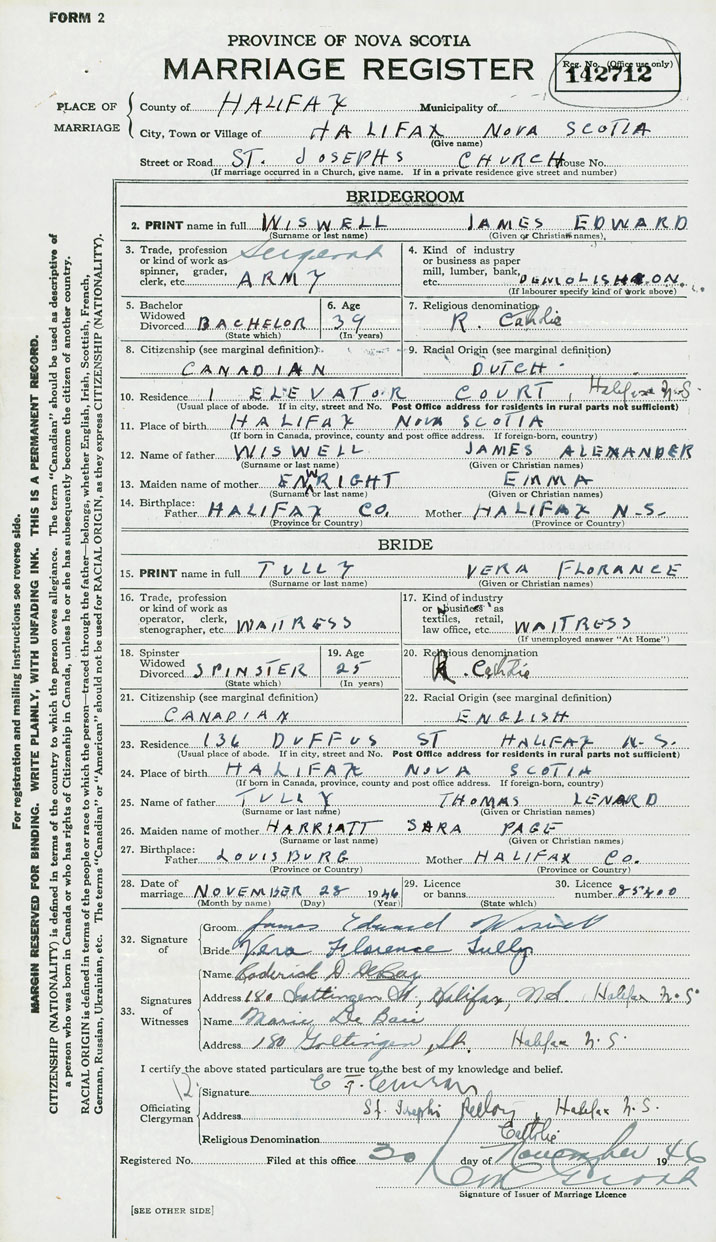 FORM 2
PROVINCE OF NOVA SCOTIA
MARRIAGE REGISTER
Reg. No. (Office use only)
142712
PLACE OF MARRIAGE
County of HALIFAX Municipality of
City, Town or Village of HALIFAX NOVA SCOTIA
(Give name)
Street or Road ST. JOSEPHS CHURCH House No.
(If marriage occurred in a Church, give name. If in a private residence give street and number)
BRIDEGROOM
2. PRINT name in full WISWELL JAMES EDWARD
(Surname or last name) (Given or Christian names)
3. Trade, profession or kind of work as spinner, grader, clerk, etc. Sergeant ARMY
4. Kind of industry or business as paper mill, lumber, bank, etc. DEMOLISHEON.
(If labourer specify kind of work above)
5. Bachelor Widowed Divorced BACHELOR
(State which)
6. Age 39
(In years)
7. Religious denomination R. Catholic
8. Citizenship (see marginal definition) CANADIAN
9. Racial Origin (see marginal definition) DUTCH
10. Residence 1 ELEVATOR COURT, Halifax N.S.
(Usual place of abode. If in city, street and No. Post Office address for residents in rural parts not sufficient)
11. Place of birth HALIFAX NOVA SCOTIA
(If born in Canada, province, county and post office address. If foreign-born, country)
12. Name of father WISWELL JAMES ALEXANDER
(Surname or last name) (Given or Christian names)
13. Maiden name of mother ENWRIGHT EMMA
(Surname or last name) (Given or Christian names)
14. Birthplace: Father HALIFAX CO. Mother HALIFAX N.S.
(Province or Country) (Province or Country)
BRIDE
15. PRINT name in full TULLY VERA FLORANCE
(Surname or last name) (Given or Christian names)
16. Trade, profession or kind of work as operator, clerk, stenographer, etc. WAITRESS
17. Kind of industry or business as textiles, retail, law office, etc. WAITRESS
(If unemployed answer "At Home")
18. Spinster Widowed Divorced SPINSTER
(State which)
19. Age 25
(In years)
20. Religious denomination R. Catholic
21. Citizenship (see marginal definition) CANADIAN
22. Racial Origin (see marginal definition) ENGLISH
23. Residence 136 DUFFUS ST HALIFAX N.S.
(Usual place of abode. If in city, street and No. Post Office address for residents in rural parts not sufficient)
24. Place of birth HALIFAX NOVA SCOTIA
(If born in Canada, province, county and post office address. If foreign-born, country)
25. Name of father TULLY THOMAS LENARD
(Surname or last name) (Given or Christian names)
26. Maiden name of mother HARRIATT SARA PAGE
(Surname or last name) (Given or Christian names)
27. Birthplace: Father LOUISBURG Mother HALIFAX CO.
(Province or Country) (Province or Country)
28. Date of marriage NOVEMBER 28 1946
(Month by name) (Day) (Year)
29. Licence or banns
(State which)
30. Licence number 85400
32. Signature of
Groom James Edward Wiswell
Bride Vera Florence Tully
33. Signatures of Witnesses
Name Roderick D DeBay
Address 180 Gottingen St, Halifax, N.S. Halifax N.S.
Name Marie De Baie
Address 180 Gottingen St. Halifax N.S.
I certify the above stated particulars are true to the best of my knowledge and belief.
Officiating Clergyman
Signature
Address St. Josephs Rectory, Halifax N.S.
Religious Denomination Catholic
Registered No. Filed at this office 30 day of November 1946
Signature of Issuer of Marriage Licence
[SEE OTHER SIDE]
For registration and mailing instructions see reverse side.
MARGIN RESERVED FOR BINDING. WRITE PLAINLY, WITH UNFADING INK. THIS IS A PERMANENT RECORD.
CITIZENSHIP (NATIONALITY) is defined in terms of the country to which the person owes allegiance. The term "Canadian" should be used as descriptive of
a person who was born in Canada or who has rights of Citizenship in Canada, unless he or she has subsequently become the citizen of another country.
RACIAL ORIGIN is defined in terms of the people or race to which the person—traced through the father—belongs, whether English, Irish, Scottish, French,
German, Russian, Ukrainian, etc. The terms "Canadian" or "American" should not be used for RACIAL ORIGIN, as they express CITIZENSHIP (NATIONALITY).